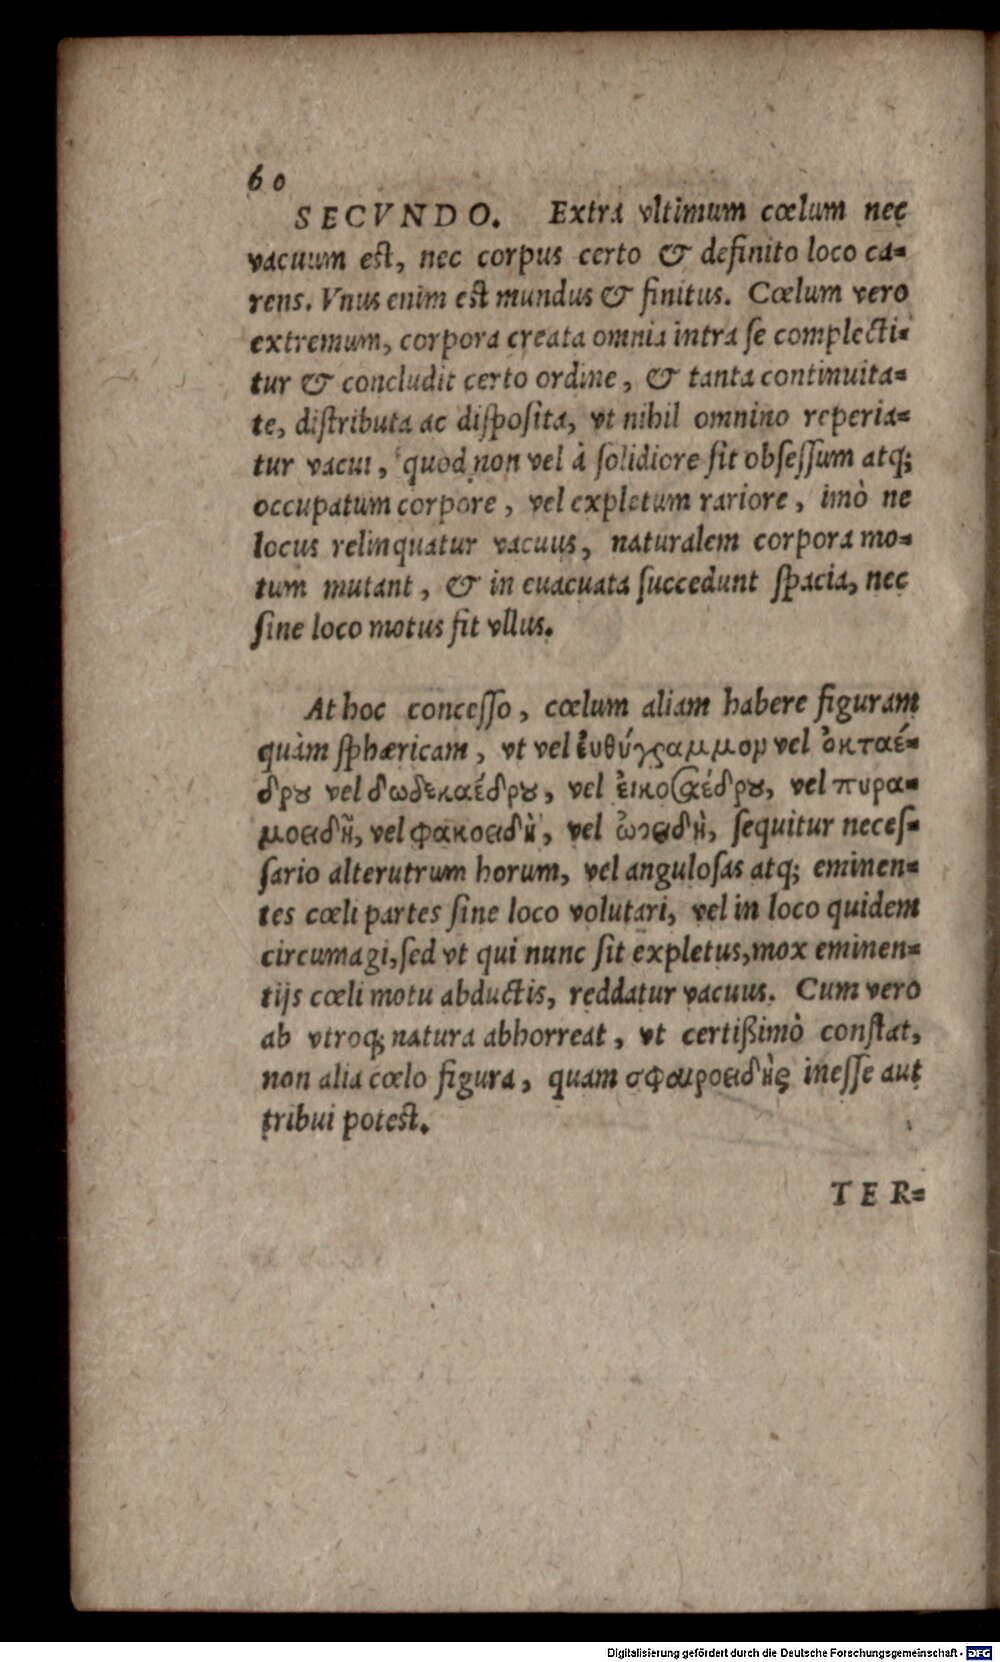 60
SECVNDO. Extra vltimum cœlum nec
vacuum est, nec corpus certo & definito loco ca=
rens. Vnus enim est mundus & finitus. Cœlum vero
extremum, corpora creata omnia intra se complecti=
tur & concludit certo ordine, & tanta continuita=
te, distributa ac disposita, vt nihil omnino reperia=
tur vacui, quod non vel à solidiore sit obsessum atq;
occupatum corpore, vel expletum rariore, imò ne
locus relinquatur vacuus, naturalem corpora mo=
tum mutant, & in euacuata succedunt spacia, nec
sine loco motus fit vllus.
At hoc concesso, cœlum aliam habere figuram
quàm sphæricam, vt vel ἐυθύγραμμον vel ὀκταέ=
δρου vel δωδεκαέδρου, vel ἐικοσαέδρου, vel πυρα=
μοειδῆ, vel φακοειδῆ, vel ὠοειδῆ, sequitur neces=
sario alterutrum horum, vel angulosas atq; eminen=
tes cœli partes sine loco volutari, vel in loco quidem
circumagi, sed vt qui nunc sit expletus, mox eminen=
tijs cœli motu abductis, reddatur vacuus. Cum vero
ab vtroq; natura abhorreat, vt certißimò constat,
non alia cœlo figura, quam σφαιροειδὴς inesse aut
tribui potest.
TER=
Digitalisierung gefördert durch die Deutsche Forschungsgemeinschaft - DFG